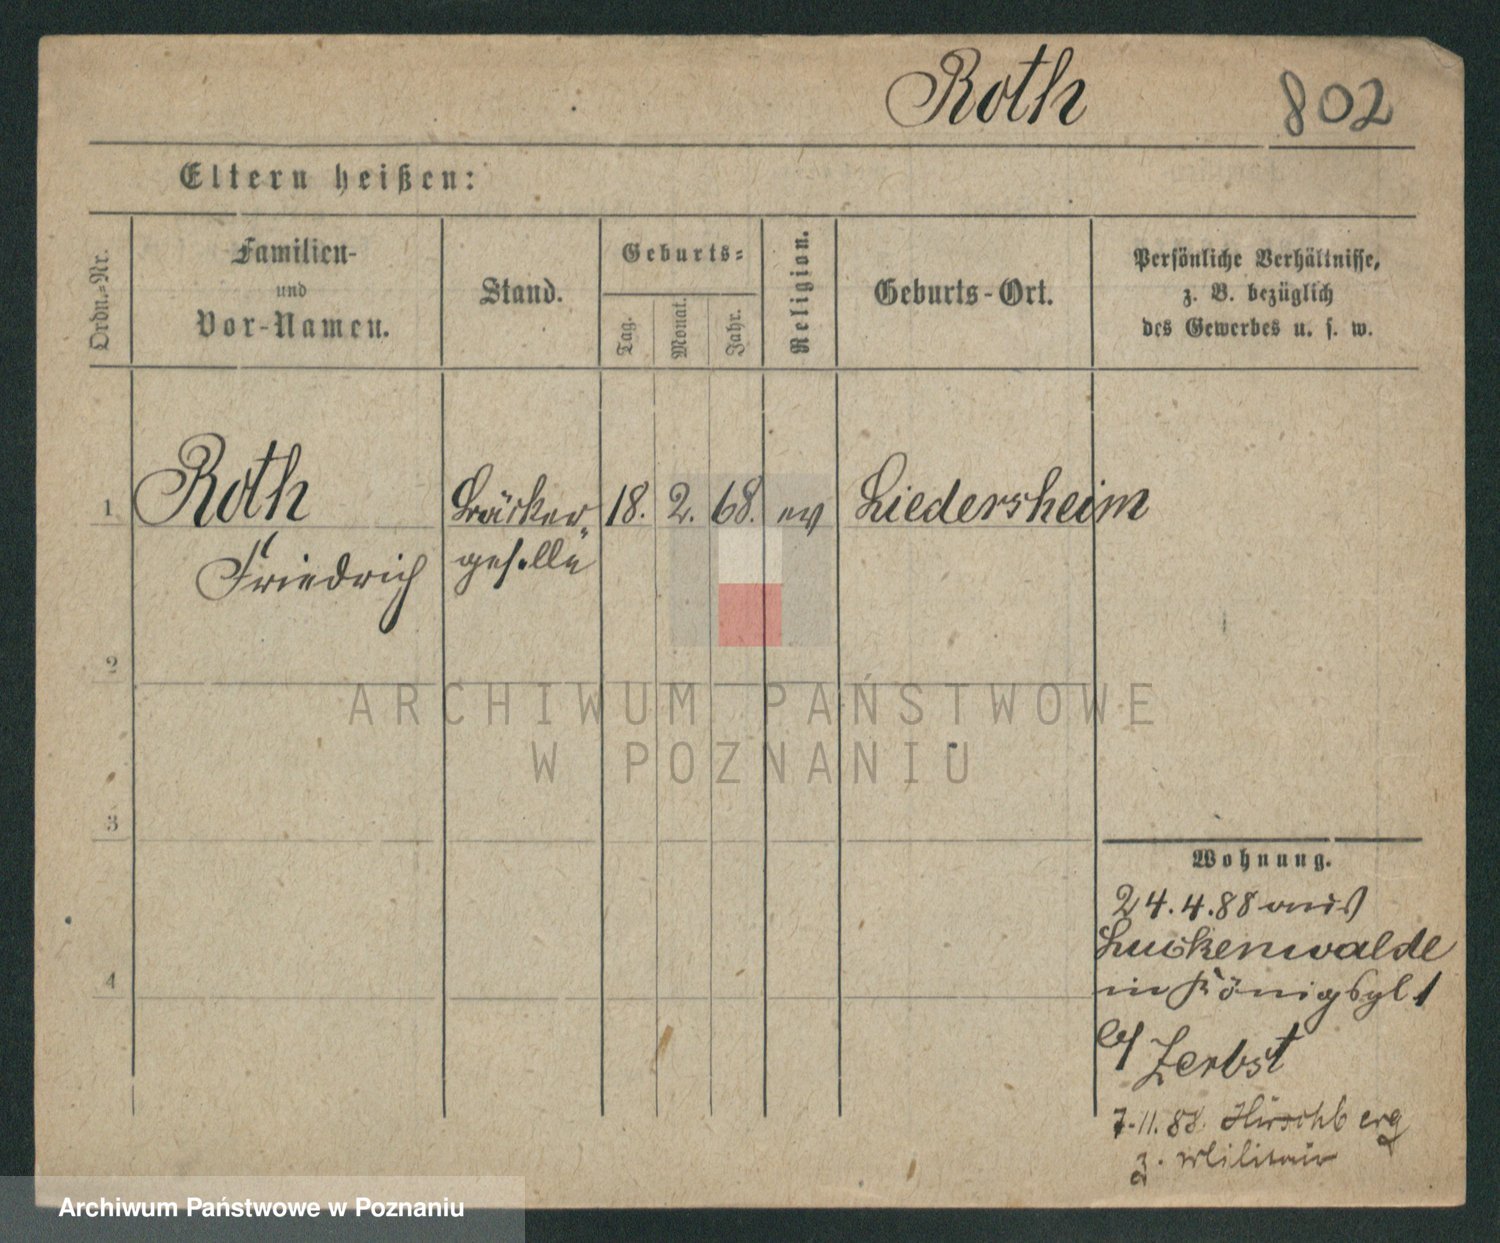 Roth 802
Eltern heißen:
Ordn.-Nr.
Familien-
und
Vor-Namen.
Stand.
Geburts-
Tag.
Monat.
Jahr.
Religion.
Geburts-Ort.
Persönliche Verhältnisse,
z. B. bezüglich
des Gewerbes u. s. w.
1 Roth Bäcker 18. 2. 68. ev Liedersheim
Friedrich geselle
2
3
4
Wohnung.
24.4.88 aus
Luckenwalde
in Königspl 1
b/ Zerbst
7.11.88 Hirschberg
z. Militair
ARCHIWUM PAŃSTWOWE
W POZNANIU
Archiwum Państwowe w Poznaniu